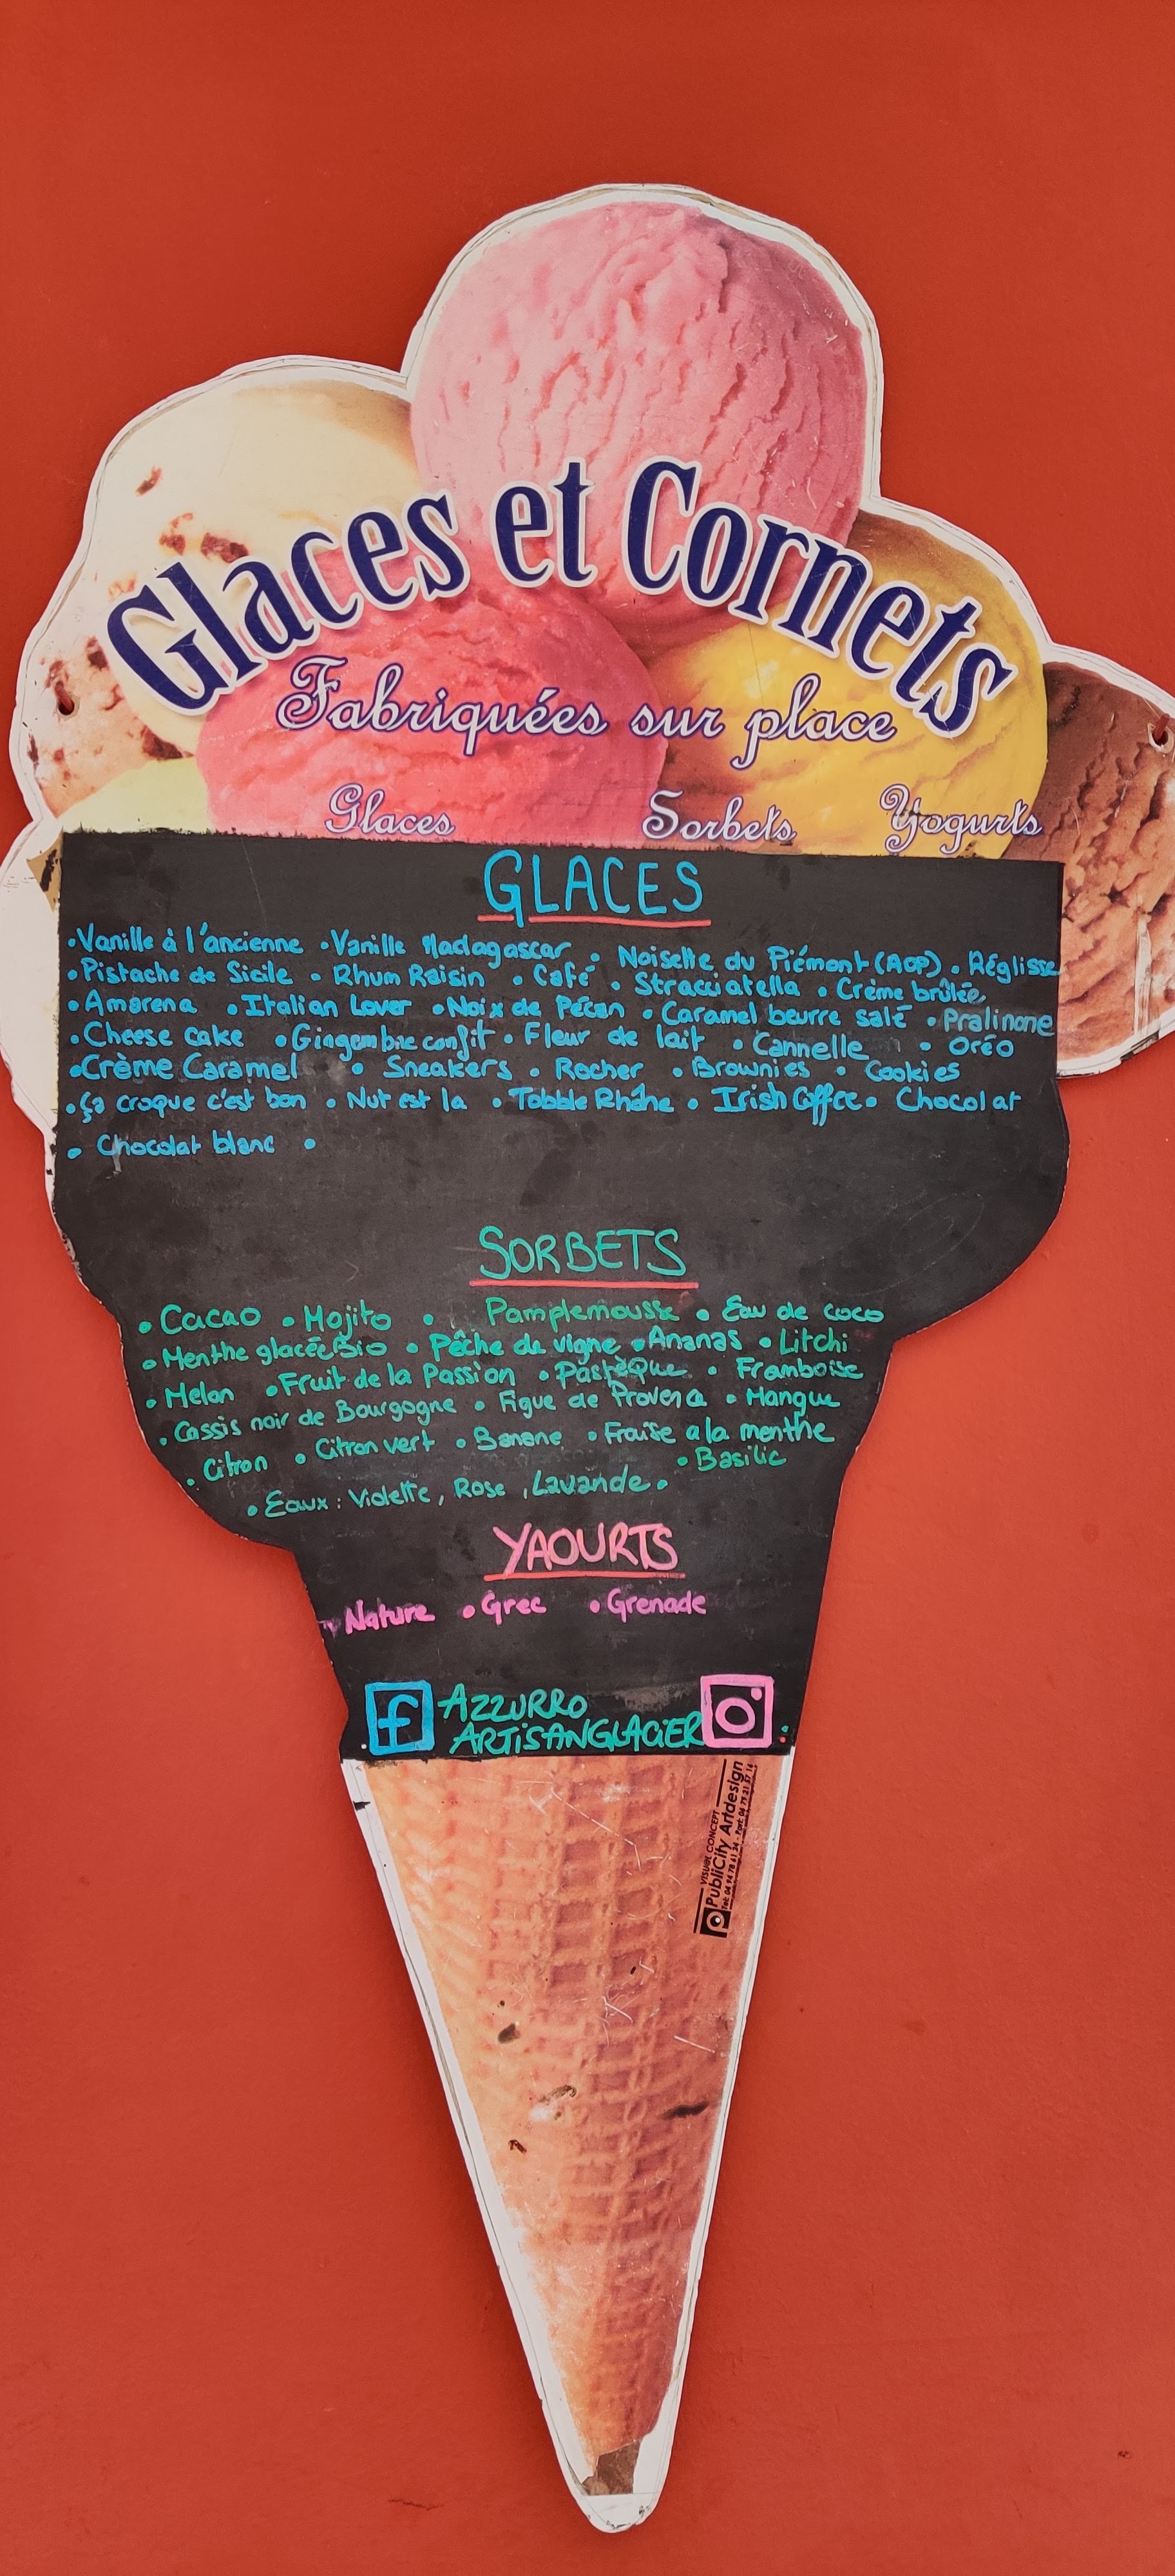 Glaces et Cornets
Fabriquées sur place
Glaces Sorbets Yogurts
GLACES
•Vanille à l'ancienne •Vanille Madagascar • Noisette du Piémont (AOP) • Réglisse
•Pistache de Sicile • Rhum Raisin • Café • Stracciatella • Crème brûlée
•Amarena •Italian Lover •Noix de Pécan •Caramel beurre salé •Pralinone
•Cheese cake •Gingembre confit • Fleur de lait • Cannelle • Oréo
•Crème Caramel • Sneakers • Rocher • Brownies • Cookies
•ça croque c'est bon • Nut est la • Tobble Rhône • Irish Coffee • Chocolat
• Chocolat blanc •
SORBETS
• Cacao • Mojito • Pamplemousse • Eau de coco
• Menthe glacée Bio • Pêche de vigne •Ananas • Litchi
• Melon •Fruit de la Passion • Pastèque • Framboise
• Cassis noir de Bourgogne • Figue de Provence • Mangue
• Citron • Citron vert • Banane • Fraise a la menthe
• Basilic
• Eaux : Violette, Rose , Lavande •
YAOURTS
Nature • Grec • Grenade
f AZZURRO
ARTiSANGLACiER
VISUAL CONCEPT
PubliCity Artdesign